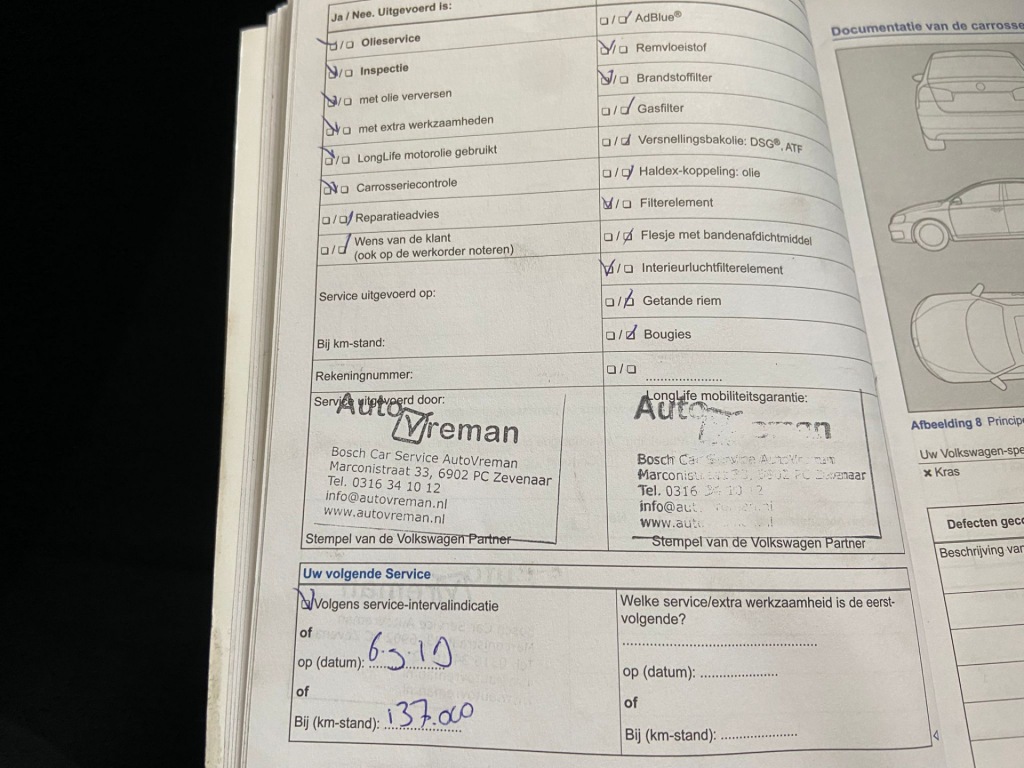 Ja / Nee. Uitgevoerd is:
Olieservice
Inspectie
met olie verversen
met extra werkzaamheden
LongLife motorolie gebruikt
Carrosseriecontrole
Reparatieadvies
Wens van de klant
(ook op de werkorder noteren)
Service uitgevoerd op:
Bij km-stand:
Rekeningnummer:
Service uitgevoerd door:
Auto
Vreman
Bosch Car Service AutoVreman
Marconistraat 33, 6902 PC Zevenaar
Tel. 0316 34 10 12
info@autovreman.nl
www.autovreman.nl
Stempel van de Volkswagen Partner
AdBlue®
Remvloeistof
Brandstoffilter
Gasfilter
Versnellingsbakolie: DSG®, ATF
Haldex-koppeling: olie
Filterelement
Flesje met bandenafdichtmiddel
Interieurluchtfilterelement
Getande riem
Bougies
LongLife mobiliteitsgarantie:
Auto
Bosch Car Service
Tel. 0316 34 10 12
Stempel van de Volkswagen Partner
Uw volgende Service
Volgens service-intervalindicatie
of
op (datum): 6.3.19
of
Bij (km-stand): 137.000
Welke service/extra werkzaamheid is de eerst-
volgende?
op (datum):
of
Bij (km-stand):
Documentatie van de carrosse
Afbeelding 8 Principe
Uw Volkswagen-spe
× Kras
Defecten geco
Beschrijving van